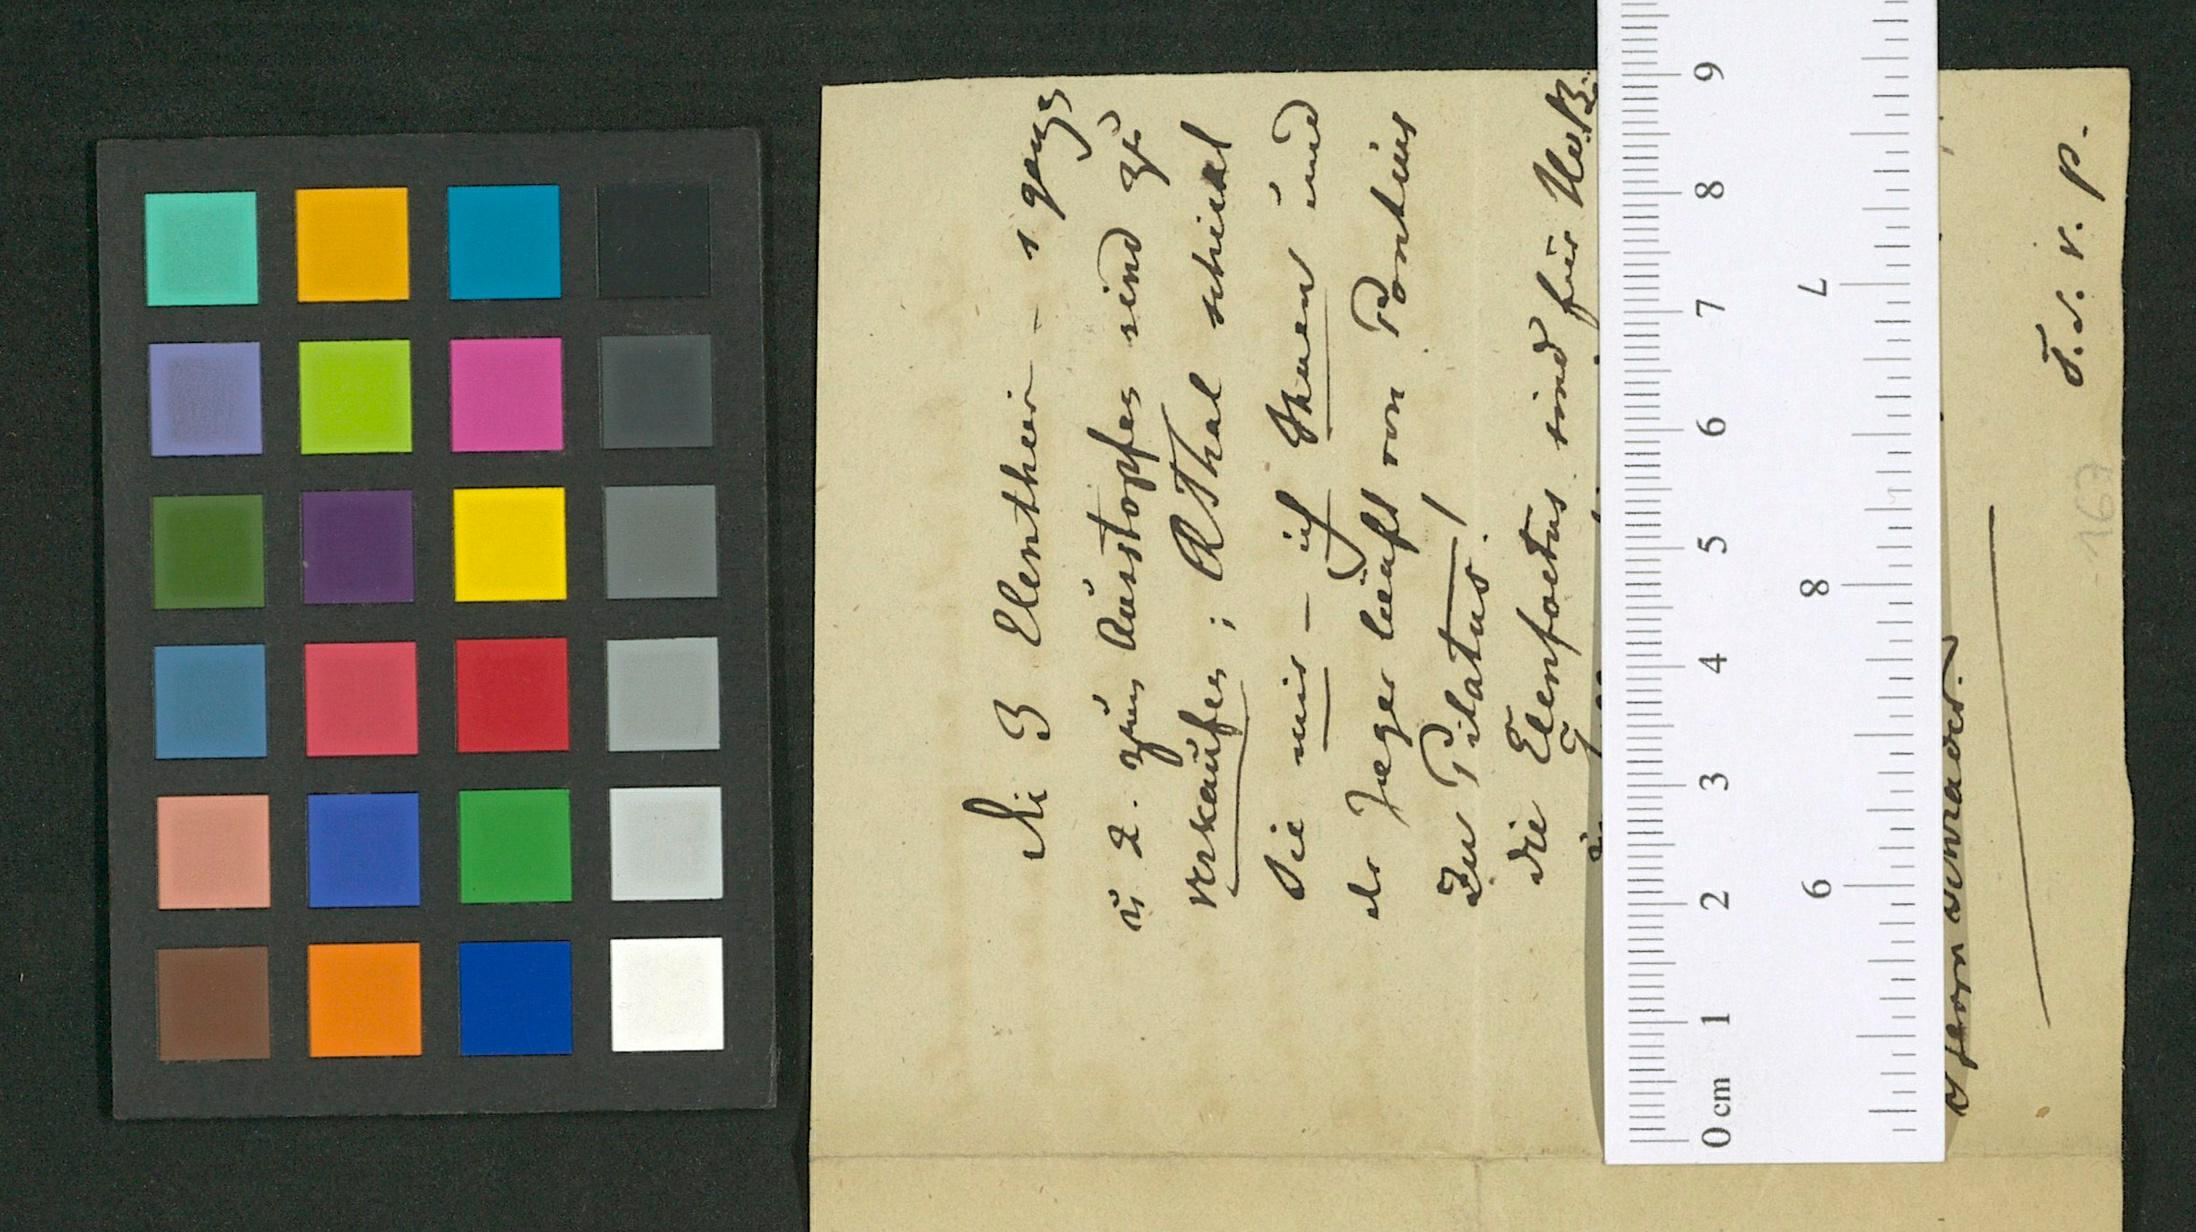 Die 3 Elenthier – 1 ganzes
u 2. zum Ausstopfen sind zu
verkaufen; RThal schickt
Sie mir – ich Ihnen und
der Jaeger läuft von Pontius
zu Pilatus!
Die Elenfoetus sind für
d Herrn Schrader.
T. s. v. p.
167
0 cm 1 2 3 4 5 6 7 8 9
9 8 7